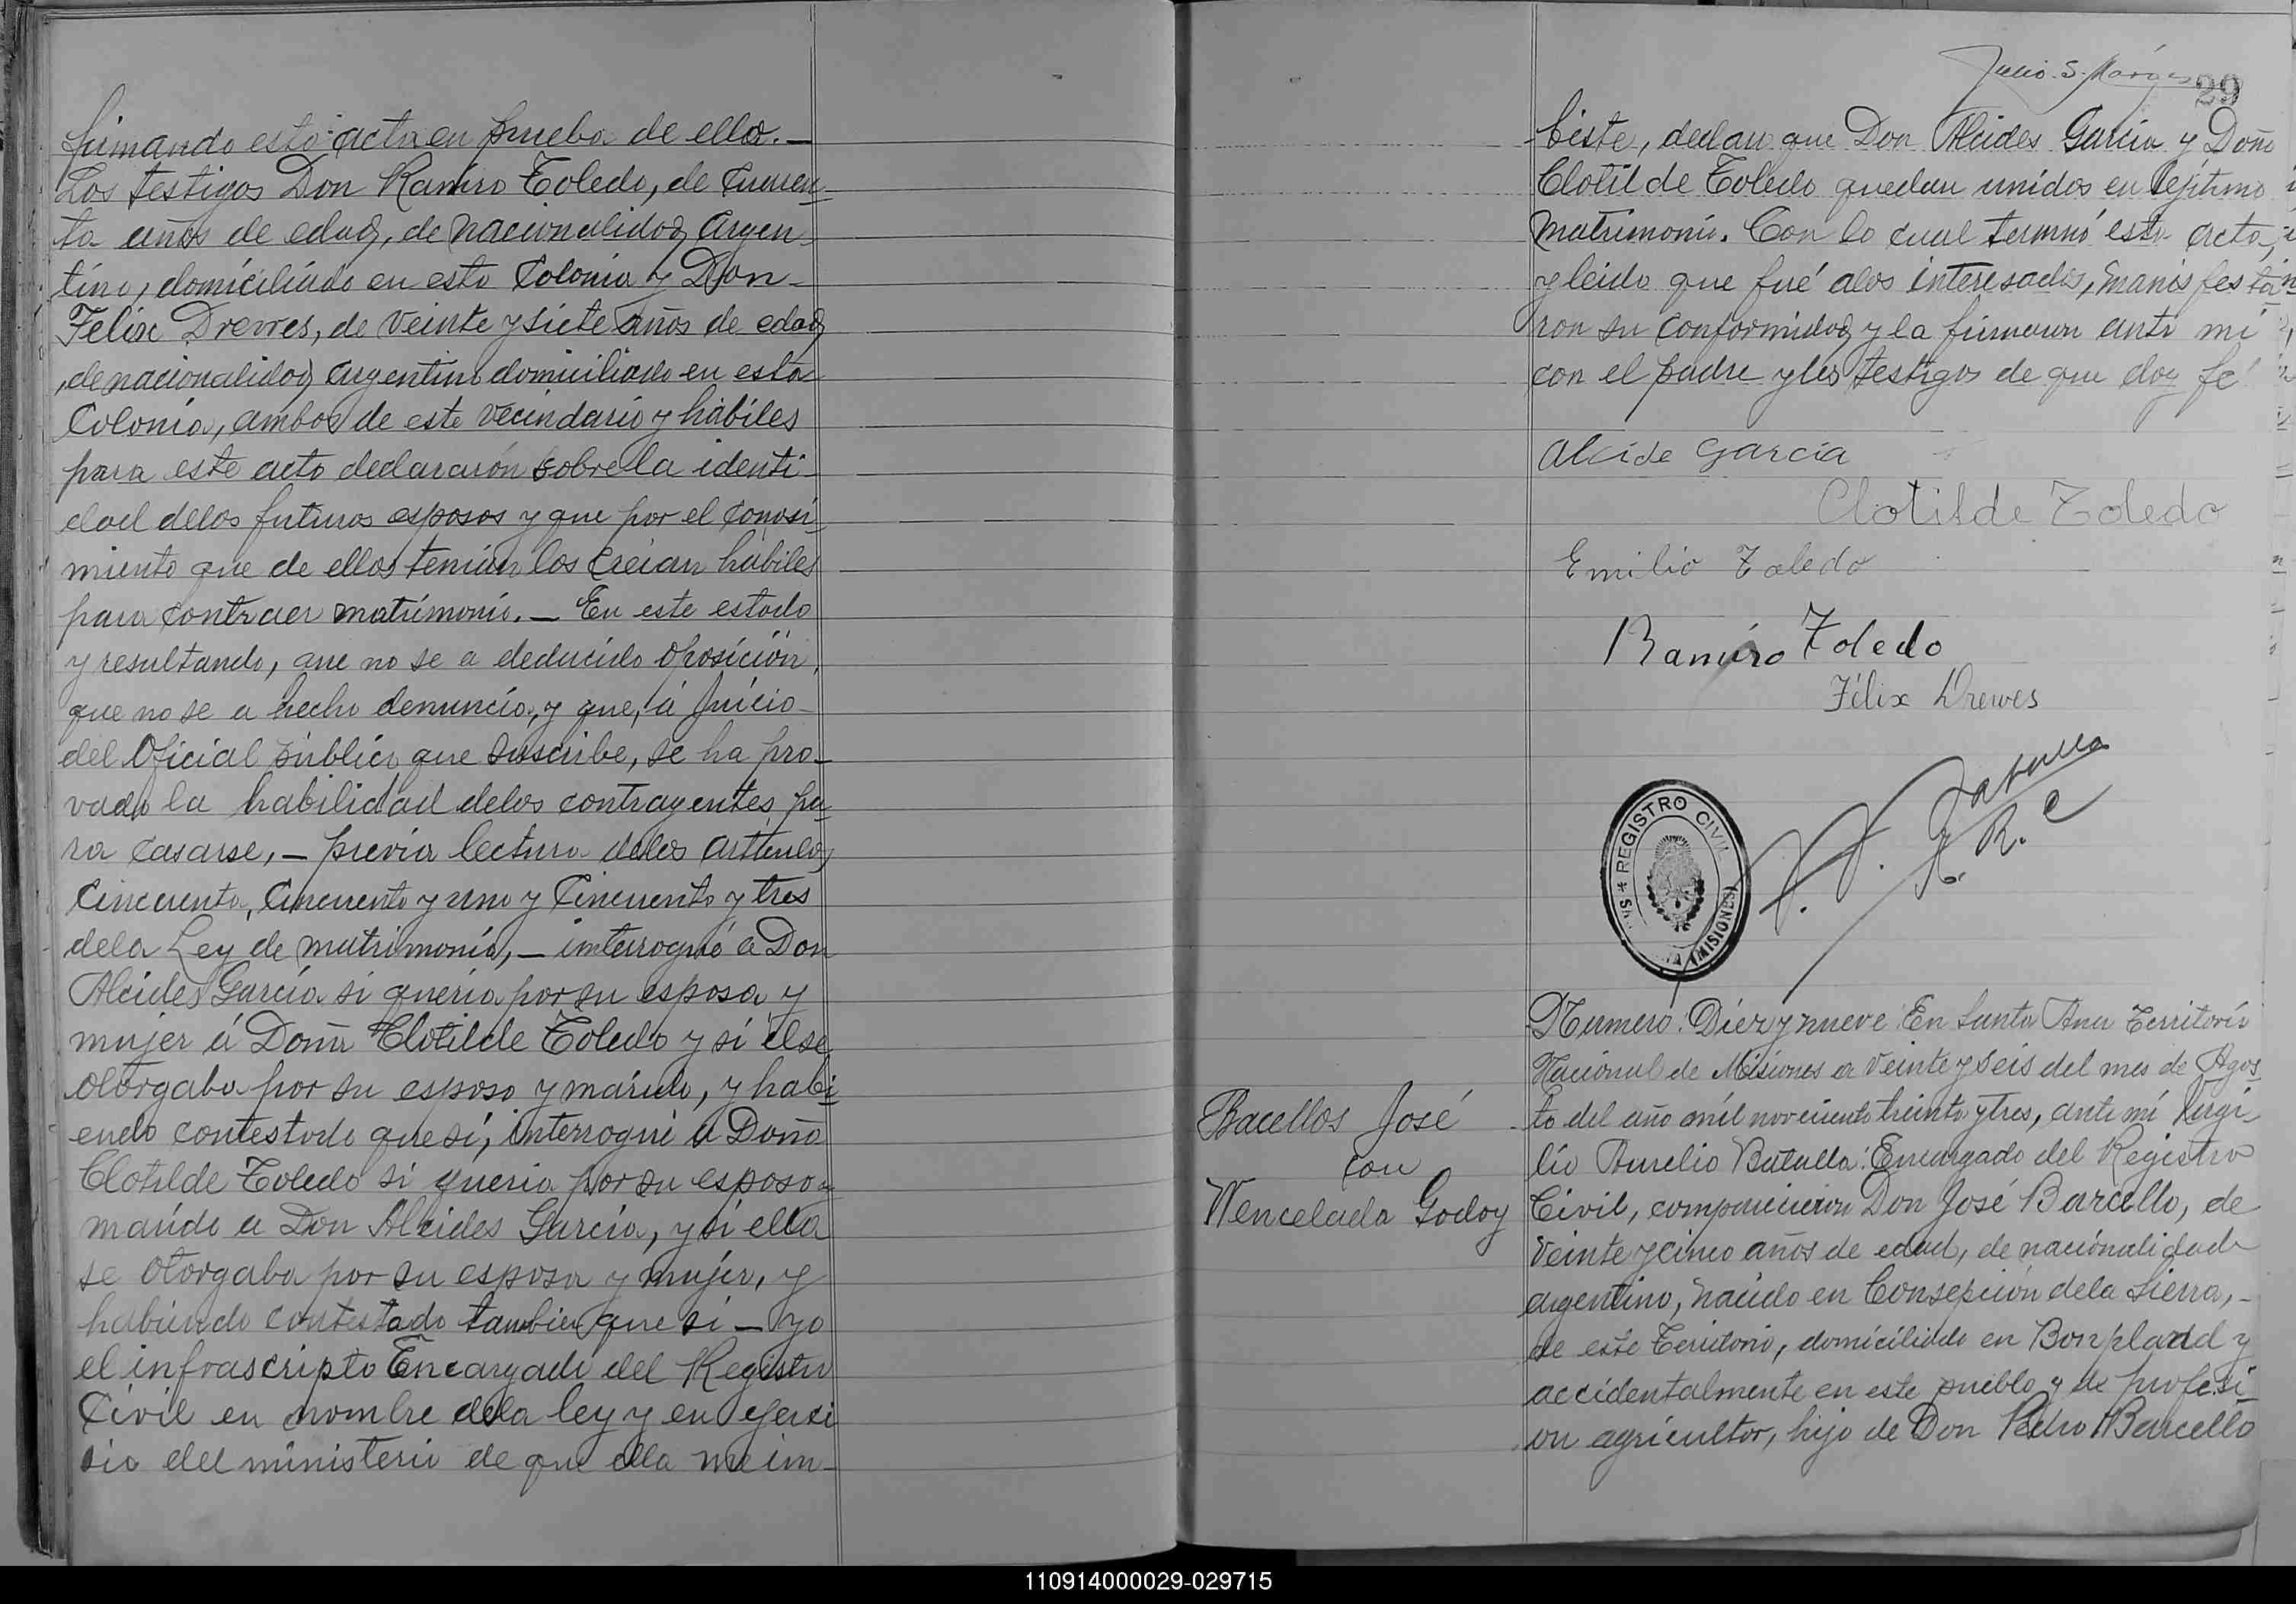 firmando esta acta en prueba de ello.—
Los testigos Don Ramiro Toledo, de Cuaren-
ta años de edad, de nacionalidad argen-
tino, domiciliado en esta Colonia y Don-
Felix Drewes, de veinte y siete años de edad
, de nacionalidad argentino domiciliado en esta
Colonia, ambos de este vecindario y hábiles
para este acto declararón sobre la identi-
dad delos futuros esposos y que por el conosi-
miento que de ellos tenian los creían hábiles
para contraer matrimonio.— En este estado
y resultando, que no se a deducido oposición,
que no se a hecho denuncia, y que, á Juicio-
del Oficial público que suscribe, se ha pro-
vado la habilidad delos contrayentes pa-
ra casarse,— previa lectura delos artículos
Cincuenta, Cincuenta y uno y Cincuenta y tres
dela Ley de matrimonio,— interrogué a Don
Alcides García si queria por su esposa y
mujer á Doña Clotilde Toledo y si el se
otorgaba por su esposo y marido, y habi-
endo contestado que sí, interrogué a Doña
Clotilde Toledo si queria por su esposo y
marido a Don Alcides García, y si ella
se otorgaba por su esposa y mujer, y
habiendo contestado tambien que si — yo
el infrascripto Encargado del Registro
Civil en nombre dela ley y en ejerci
sio del ministerio de que ella me im-
Julio S.
29
biste, declaro que Don Alcides Garcia y Doña
Clotilde Toledo quedan unidos en lejitimo
matrimonio. Con lo cual terminó esta acta,
y leida que fué alos interesados, manisfesta
ron su conformidad y la firmaron ante mi
con el padre y los testigos de que doy fé
Alcide Garcia
Clotilde Toledo
Emilio Toledo
Ramiro Toledo
Félix Drewes
V. A. Batalla
E. R. C
REGISTRO CIVIL
(MISIONES)
Numero. Diez y nueve. En Santa Ana Territorio
Nacional de Misiones a veinte y seis del mes de Agos-
to del año mil novecientos treinta y tres, ante mí Virgi-
lio Aurelio Batalla. Encargado del Registro
Bacellos José
con
Wencelada Godoy
Civil, comparecieron Don José Barcello, de
veinte y cinco años de edad, de nacionalidad
argentino, nacido en Consepción dela Sierra,-
de este Territorio, domiciliado en Bonpland y
accidentalmente en este pueblo y de profesi-
on agricultor, hijo de Don Pedro Barcello
110914000029-029715